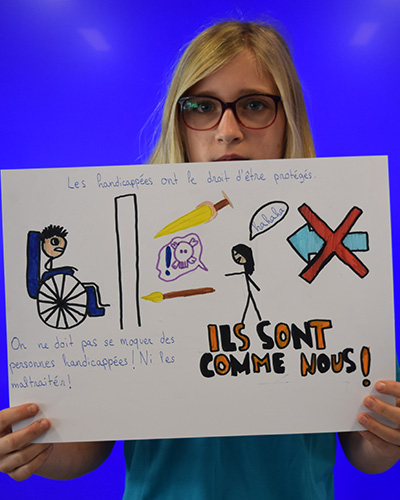 Les handicappées ont le droit d'être protégés.
hahaha
On ne doit pas se moquer des
personnes handicappées! Ni les
maltraités!
ILS SONT
COMME NOUS!